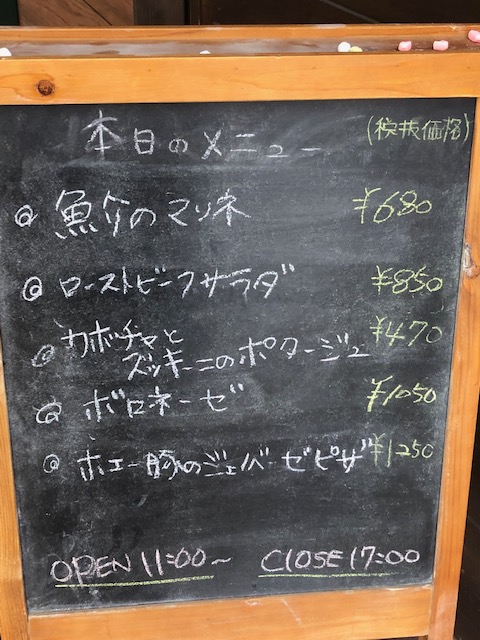 本日のメニュー (税抜価格)
◎ 魚介のマリネ ¥680
◎ ローストビーフサラダ ¥850
◎ カボチャと
ズッキーニのポタージュ ¥470
◎ ボロネーゼ ¥1050
◎ ホエー豚のジェノバーゼピザ ¥1250
OPEN 11:00～ CLOSE 17:00